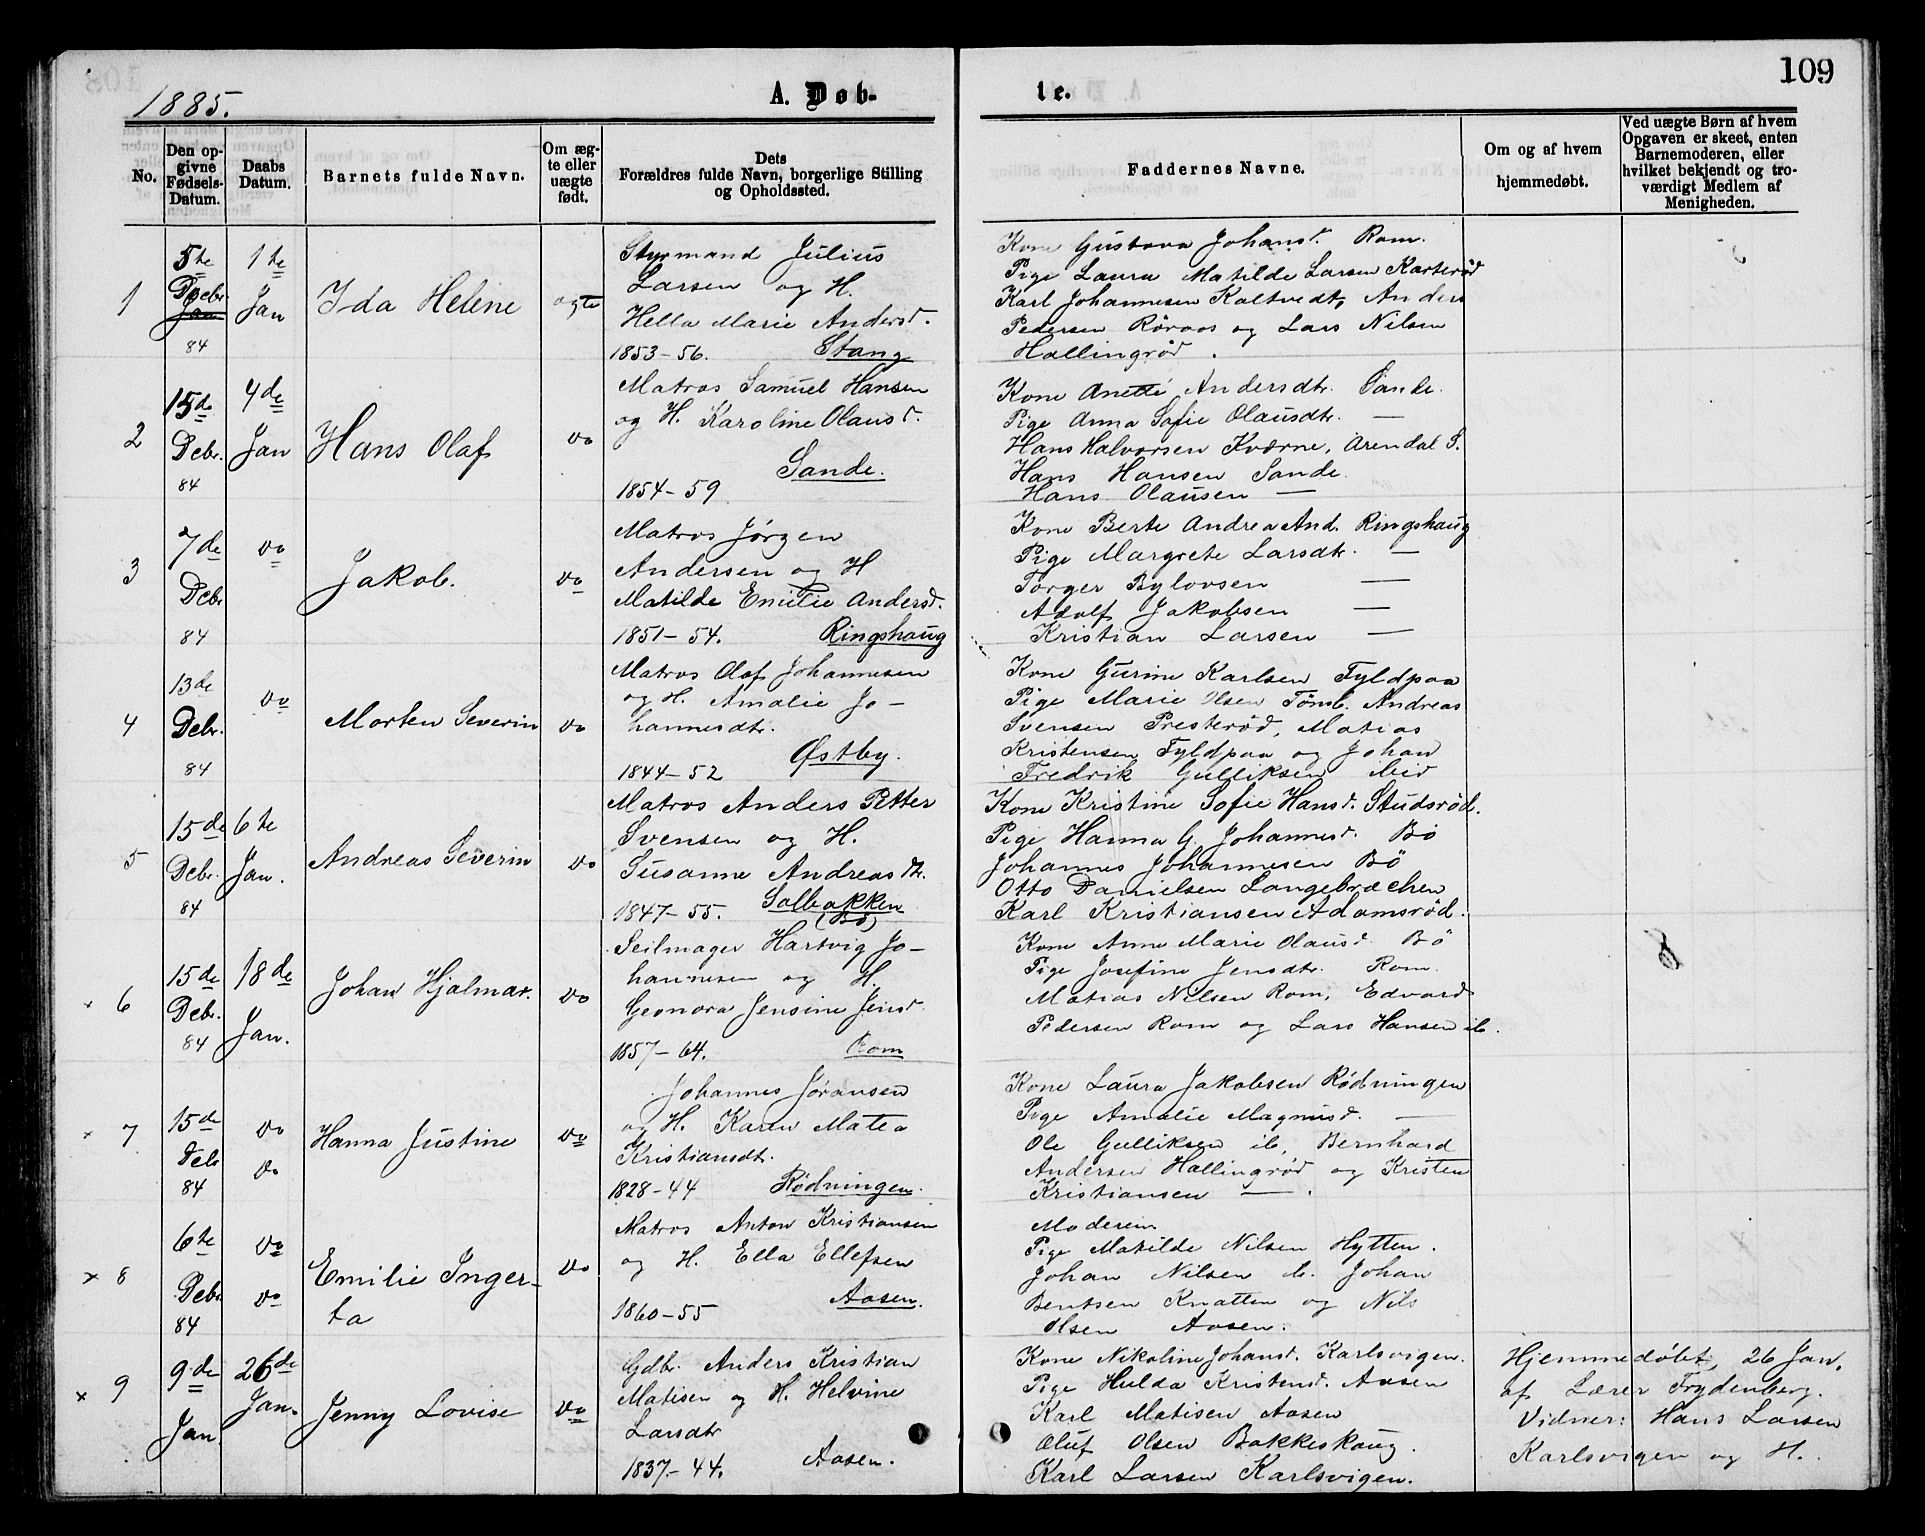 109
1885.
A. Døb-
te.
No.
Den op-
givne
Fødsels-
Datum.
Daabs
Datum.
Barnets fulde Navn.
Om æg-
te eller
uægte
født.
Dets
Forældres fulde Navn, borgerlige Stilling
og Opholdssted.
Faddernes Navne.
Om og af hvem
hjemmedøbt.
Ved uægte Børn af hvem
Opgaven er skeet, enten
Barnemoderen, eller
hvilket bekjendt og tro-
værdigt Medlem af
Menigheden.
1
5te
Decbr.
Jan
84
1te
Jan
Ida Helene
ægte
Styrmand Julius
Larsen og H.
Hella Marie Andersd.
1853-56. Stang
Kone Gustava Johansd. Rom.
Pige Laura Matilde Larsen Karterød
Karl Johannesen Kaltvedt, Anders
Pedersen Røraas og Lars Nilsen
Hallingrød.
2
15de
Debr.
84
4de
Jan
Hans Olaf
do
Matros Samuel Hansen
og H. Karoline Olausd.
Sande.
1854-59
Kone Anette Andersdtr. Sande.
Pige Anna Sofie Olausdtr. —
Hans Halvorsen Kværne, Arendal S.
Hans Hansen Sande.
Hans Olausen —
3
7de
Debr
84
do
Jakob.
do
Matros Jørgen
Andersen og H
Matilde Emilie Andersd.
1851-54. Ringshaug
Kone Berte Andrea And. Ringshaug
Pige Margrete Larsdtr. —
Torger Bylovsen —
Adolf Jakobsen —
Kristian Larsen —
4
13de
Debr.
84
do
Morten Severin
do
Matros Olaf Johannesen
og H. Amalie Jo-
hannesdtr.
Østby.
1844-52
Kone Gurine Karlsen Fyldpaa
Pige Marie Olsen Tønsb. Andreas
Svensen Presterød, Matias
Kristensen Fyldpaa og Johan
Fredrik Gulliksen ibid
5
15de
Debr.
84
6te
Jan.
Andreas Severin
do
Matros Anders Petter
Svensen og H.
Susanne Andreasdtr.
1847-55. Solbakken
(Bø)
Kone Kristine Sofie Hansd. Studsrød.
Pige Hanna G. Johannesd. Bø
Johannes Johannesen Bø
Otto Danielsen Langebrækken
Karl Kristiansen Adamsrød.
× 6
15de
Debr.
84
18de
Jan.
Johan Hjalmar.
do
Seilmager Hartvig Jo-
hannesen og H.
Geonora Jensine Jensd.
1857-64. Rom
Kone Anne Marie Olausd. Bø
Pige Josefine Jensdtr. Rom.
Matias Nilsen Rom, Edvard
Pedersen Rom og Lars Hansen ib.
× 7
15de
Deb
84
do
do
Hanna Justine
do
Johannes Jøransen
og H. Karen Matea
Kristiansdtr.
1828-44 Rødningen.
Kone Laura Jakobsen Rødningen
Pige Amalie Magnusd. —
Ole Gulliksen ib, Bernhard
Andersen Hallingrød og Kristen
Kristiansen —.
× 8
6te
Debr
84
do
do
Emilie Inger-
ta
do
Matros Anton Kristiansen
og H. Ella Ellefsen
Aasen.
1860-55
Moderen
Pige Matilde Nilsen Hytten.
Johan Nilsen ib. Johan
Bentsen Knatten og Nils
Olsen Aasen.
× 9
9de
Jan.
26de
Jan.
Jenny Lovise
do
Gdbr. Anders Kristian
Matisen og H. Helvine
Larsdtr
1837-44. Aasen.
Kone Nikoline Johansd. Karlsvigen.
Pige Hulda Kristensd. Aasen
Karl Matisen Aasen
Oluf Olsen Bakkeskaug.
Karl Larsen Karlsvigen.
Hjemmedøbt, 26 Jan,
af Lærer Frydenberg.
Vidner: Hans Larsen
Karlsvigen og H.